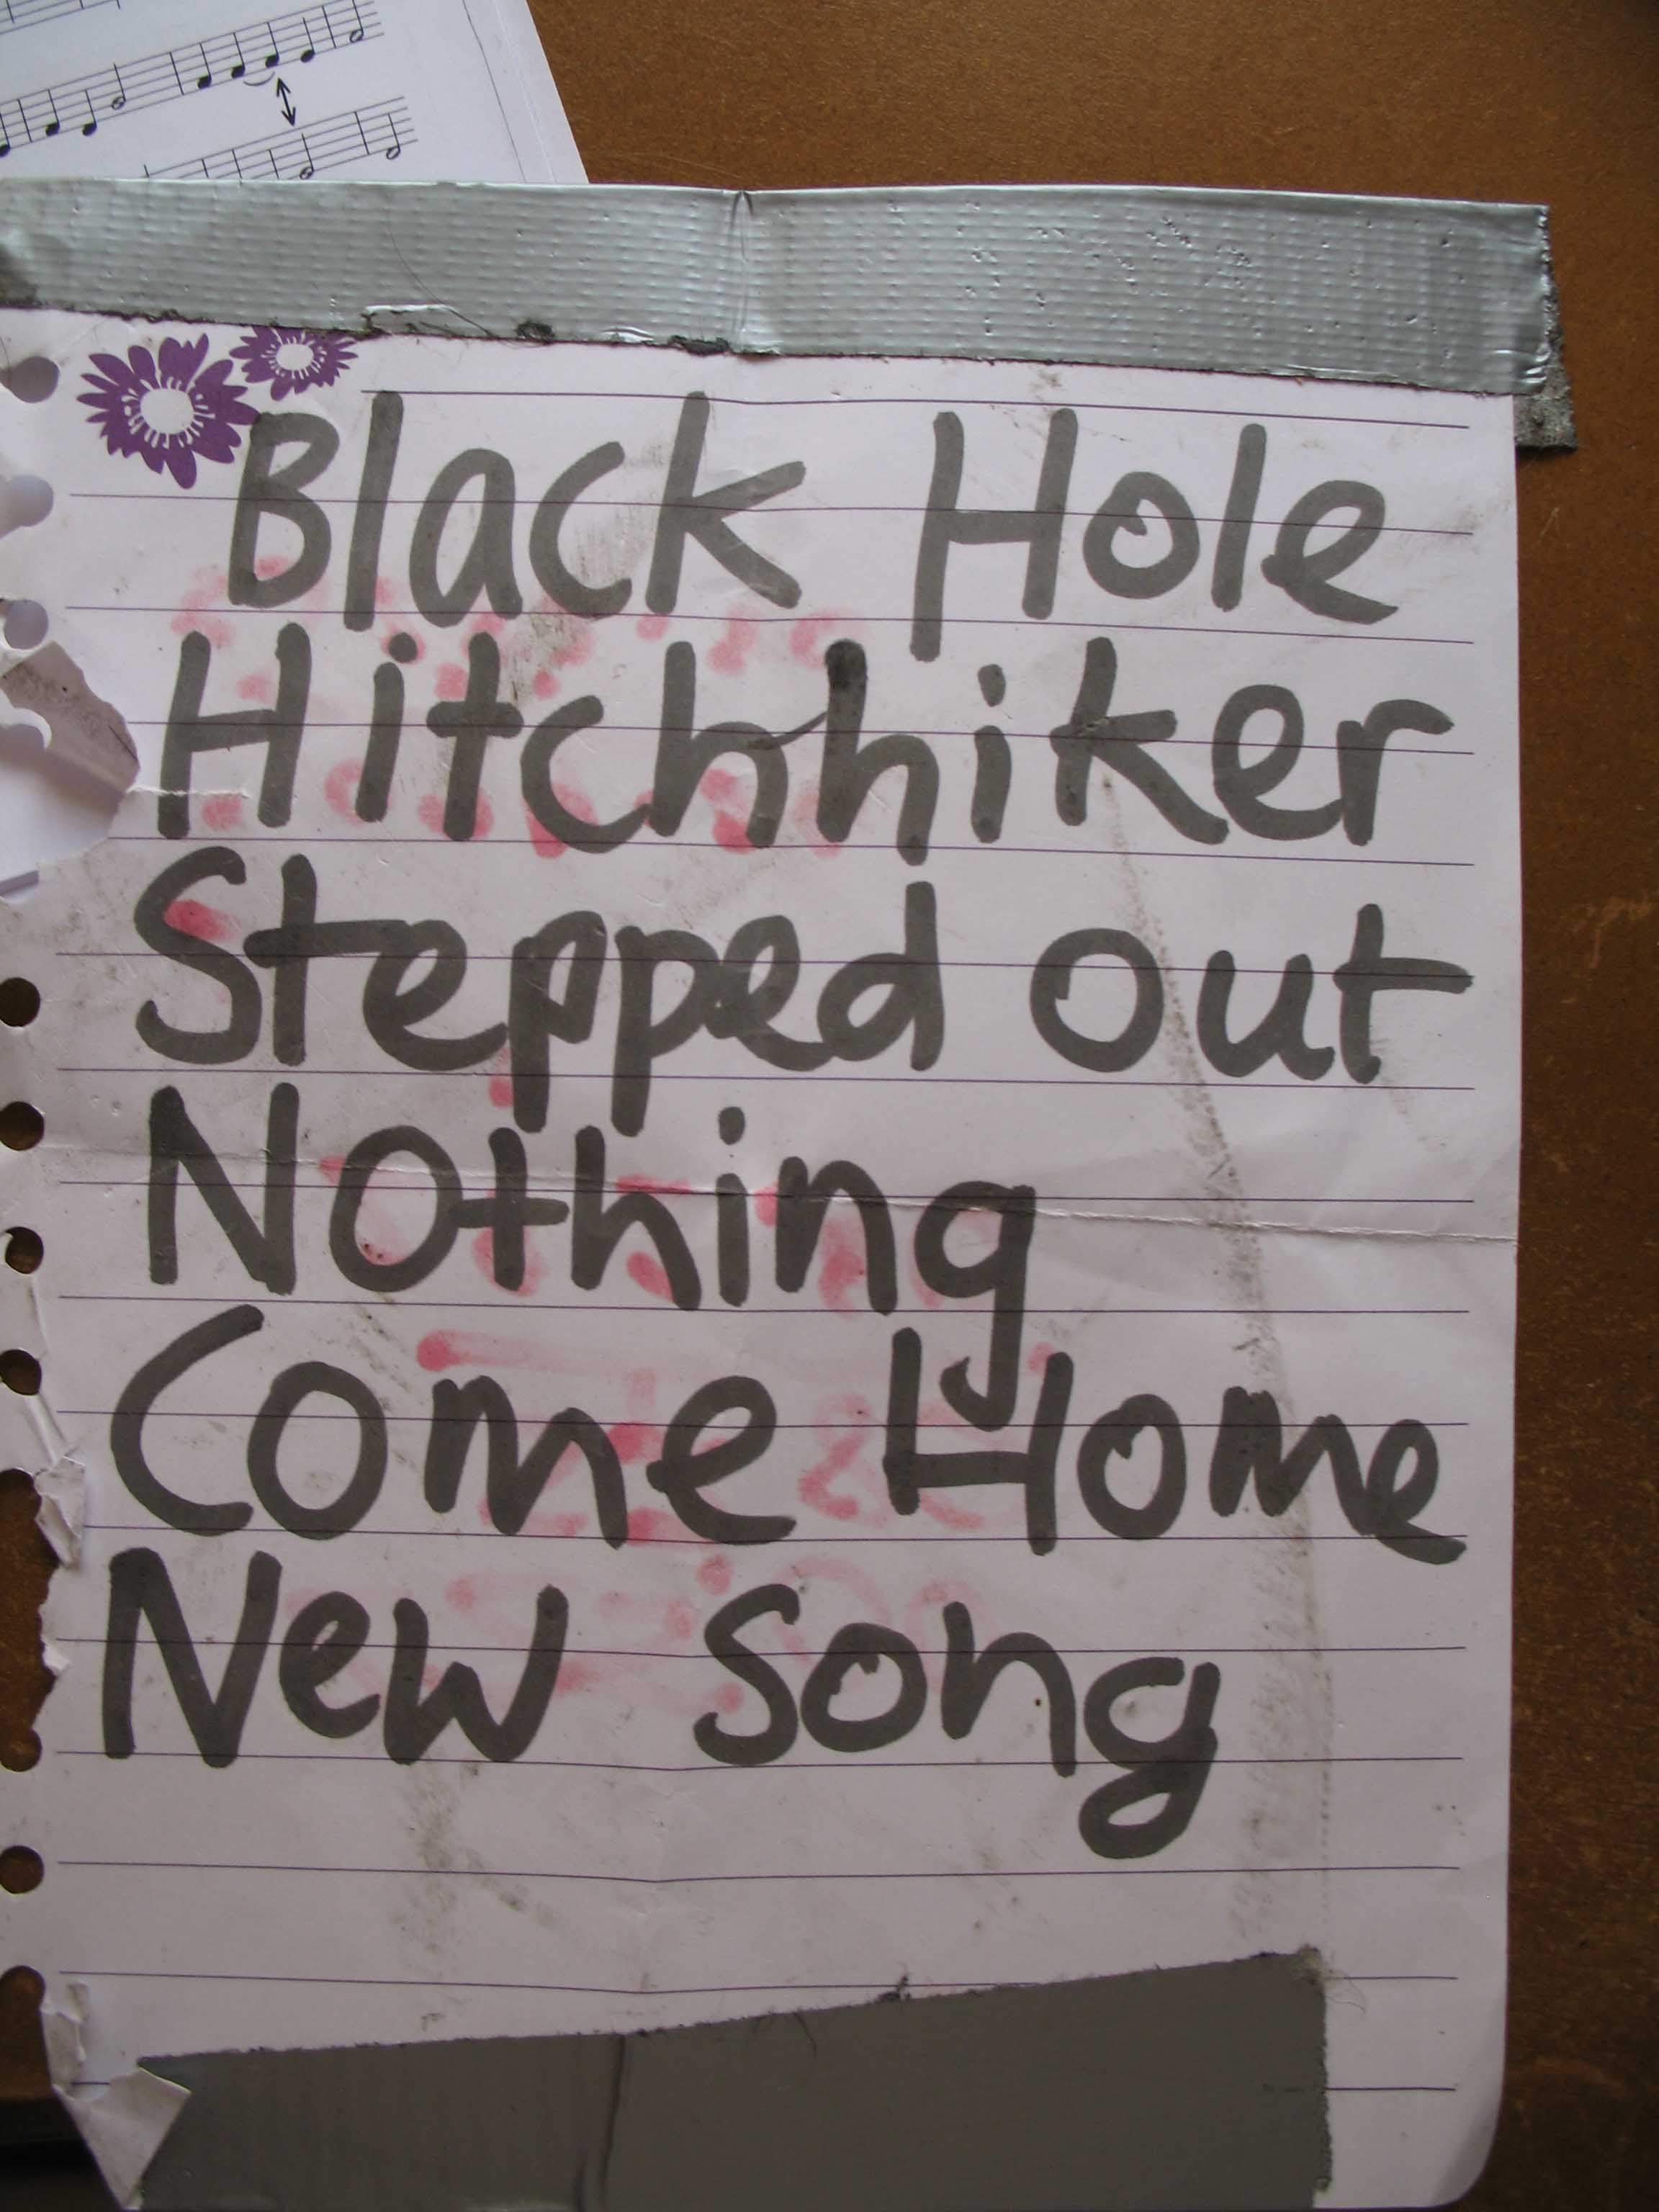 Black Hole
Hitchhiker
Stepped Out
Nothing
Come Home
New Song